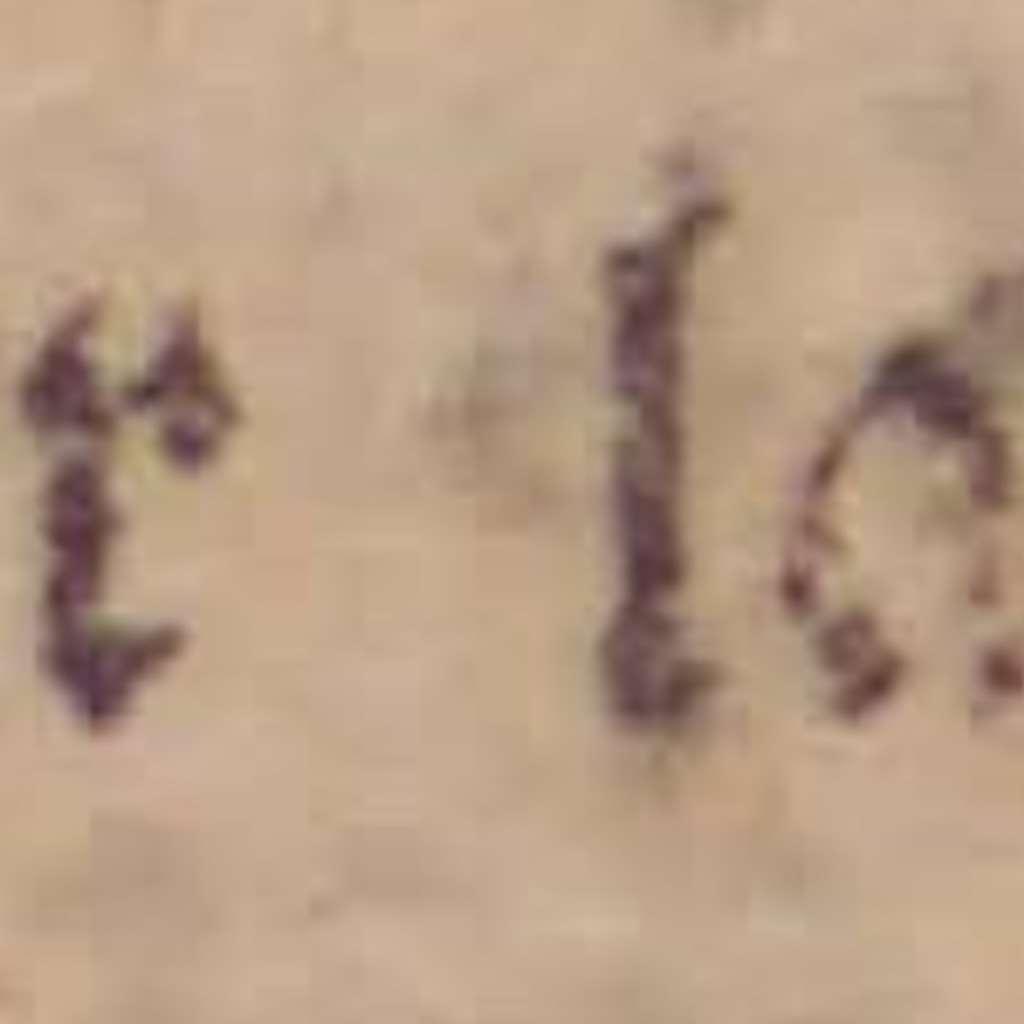 r la